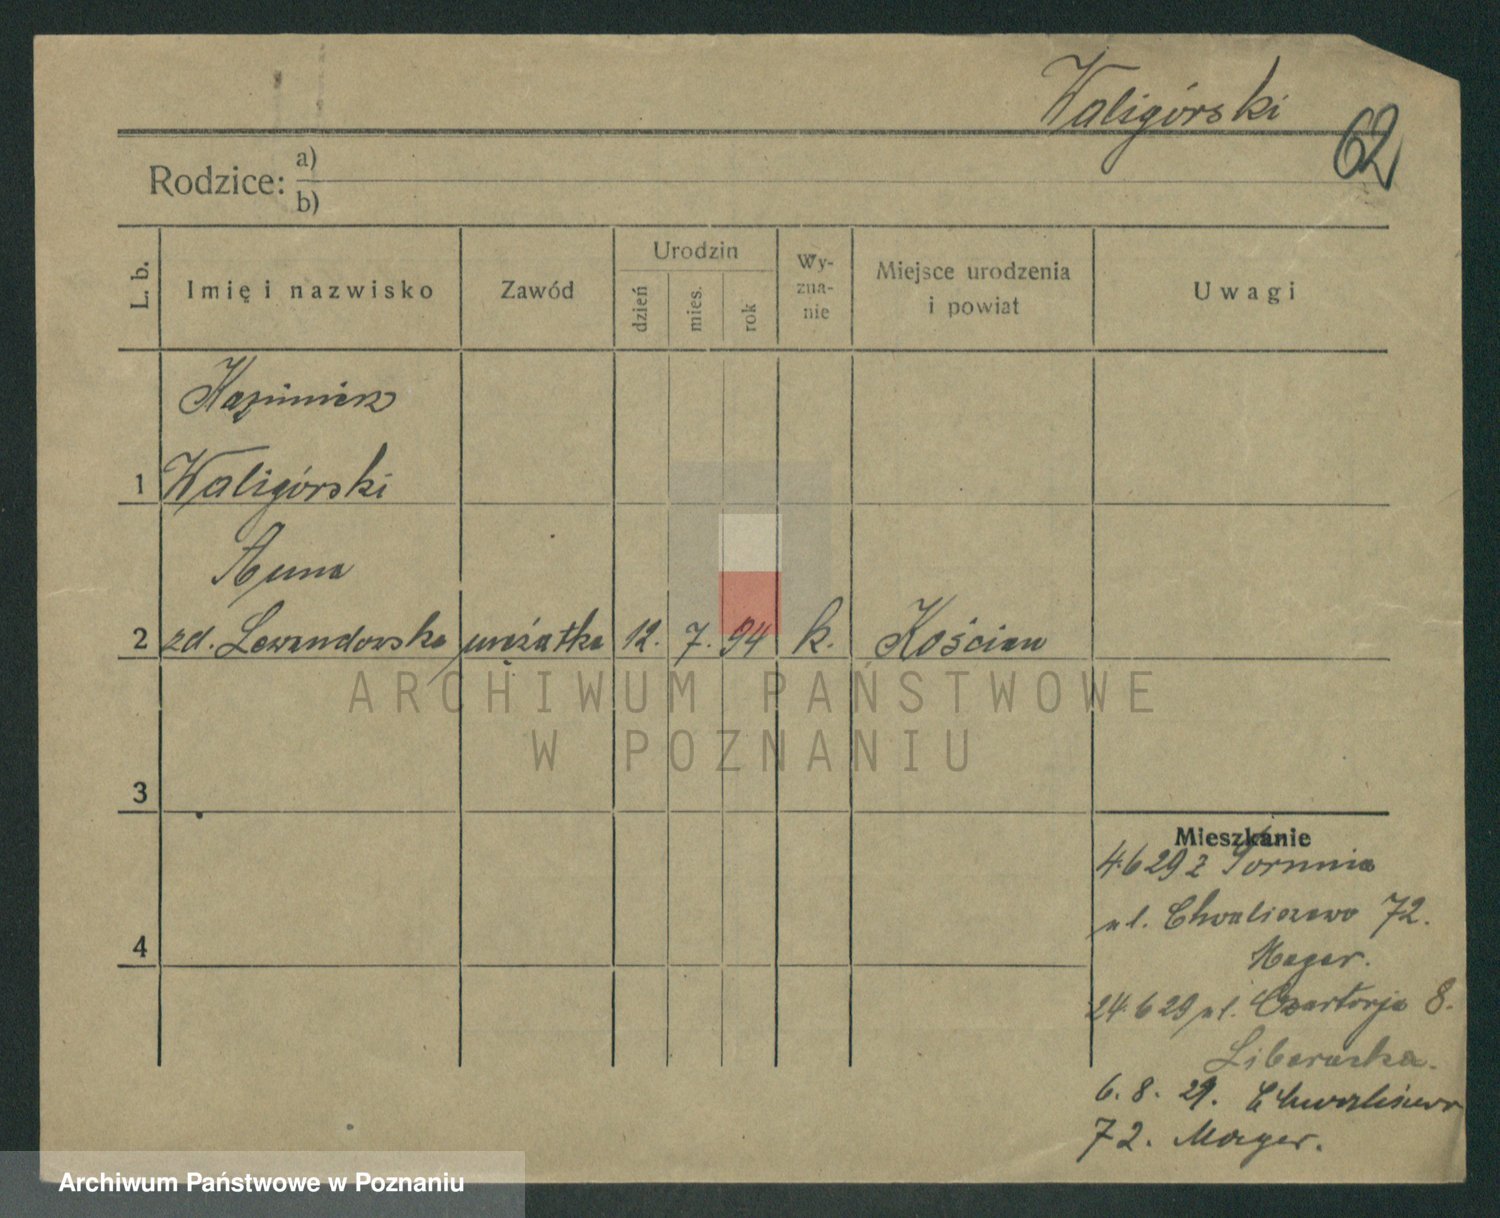 Waligórski
62
Rodzice: a)
b)
L. b.
Imię i nazwisko
Zawód
Urodzin
dzień
mies.
rok
Wy-
zna-
nie
Miejsce urodzenia
i powiat
Uwagi
Kazimierz
1 Waligórski
Anna
2 zd. Lewandowska mężatka 12. 7. 94 k. Kościan
ARCHIWUM PAŃSTWOWE
W POZNANIU
3
Mieszkanie
4.6 29 z Torunia
ul. Chwaliszewo 72.
4
Mager.
24.6 29 ul. Czartorja 8.
6. 8. 29. Chwaliszewo
72. Mager.
Archiwum Państwowe w Poznaniu